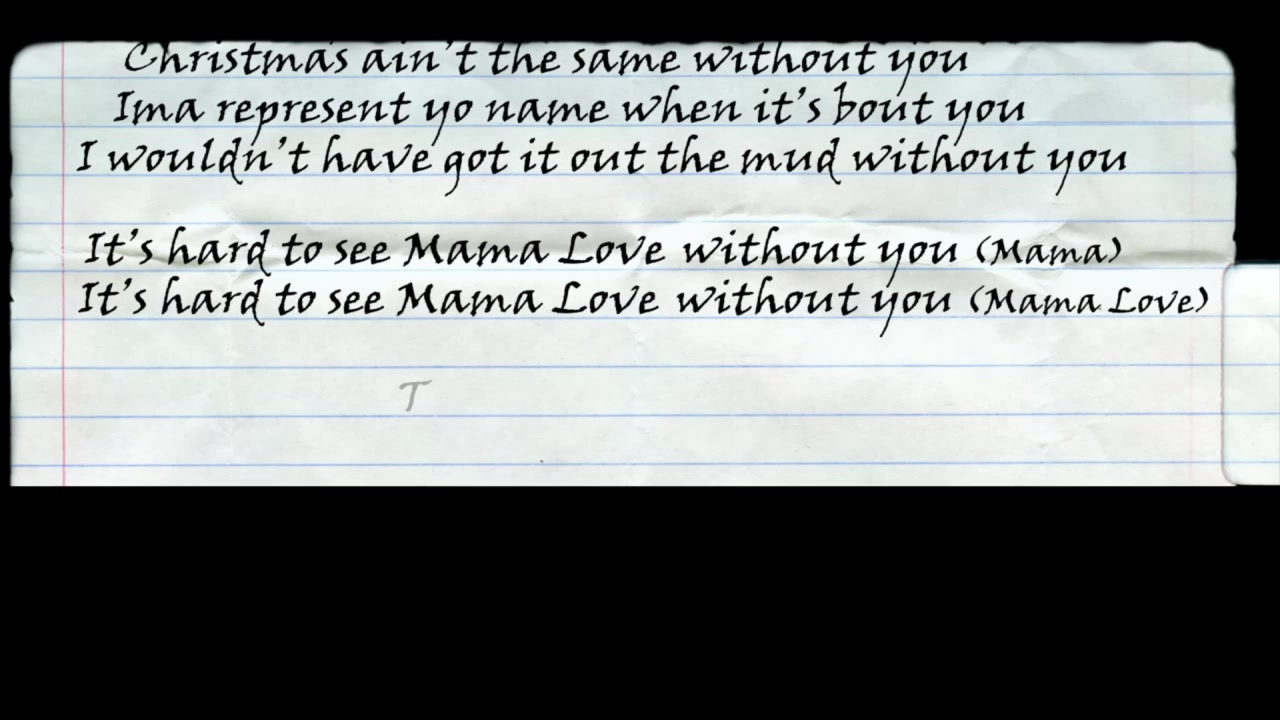 Christmas ain't the same without you
Ima represent yo name when it's bout you
I wouldn't have got it out the mud without you
It's hard to see Mama Love without you (Mama)
It's hard to see Mama Love without you (Mama Love)
T